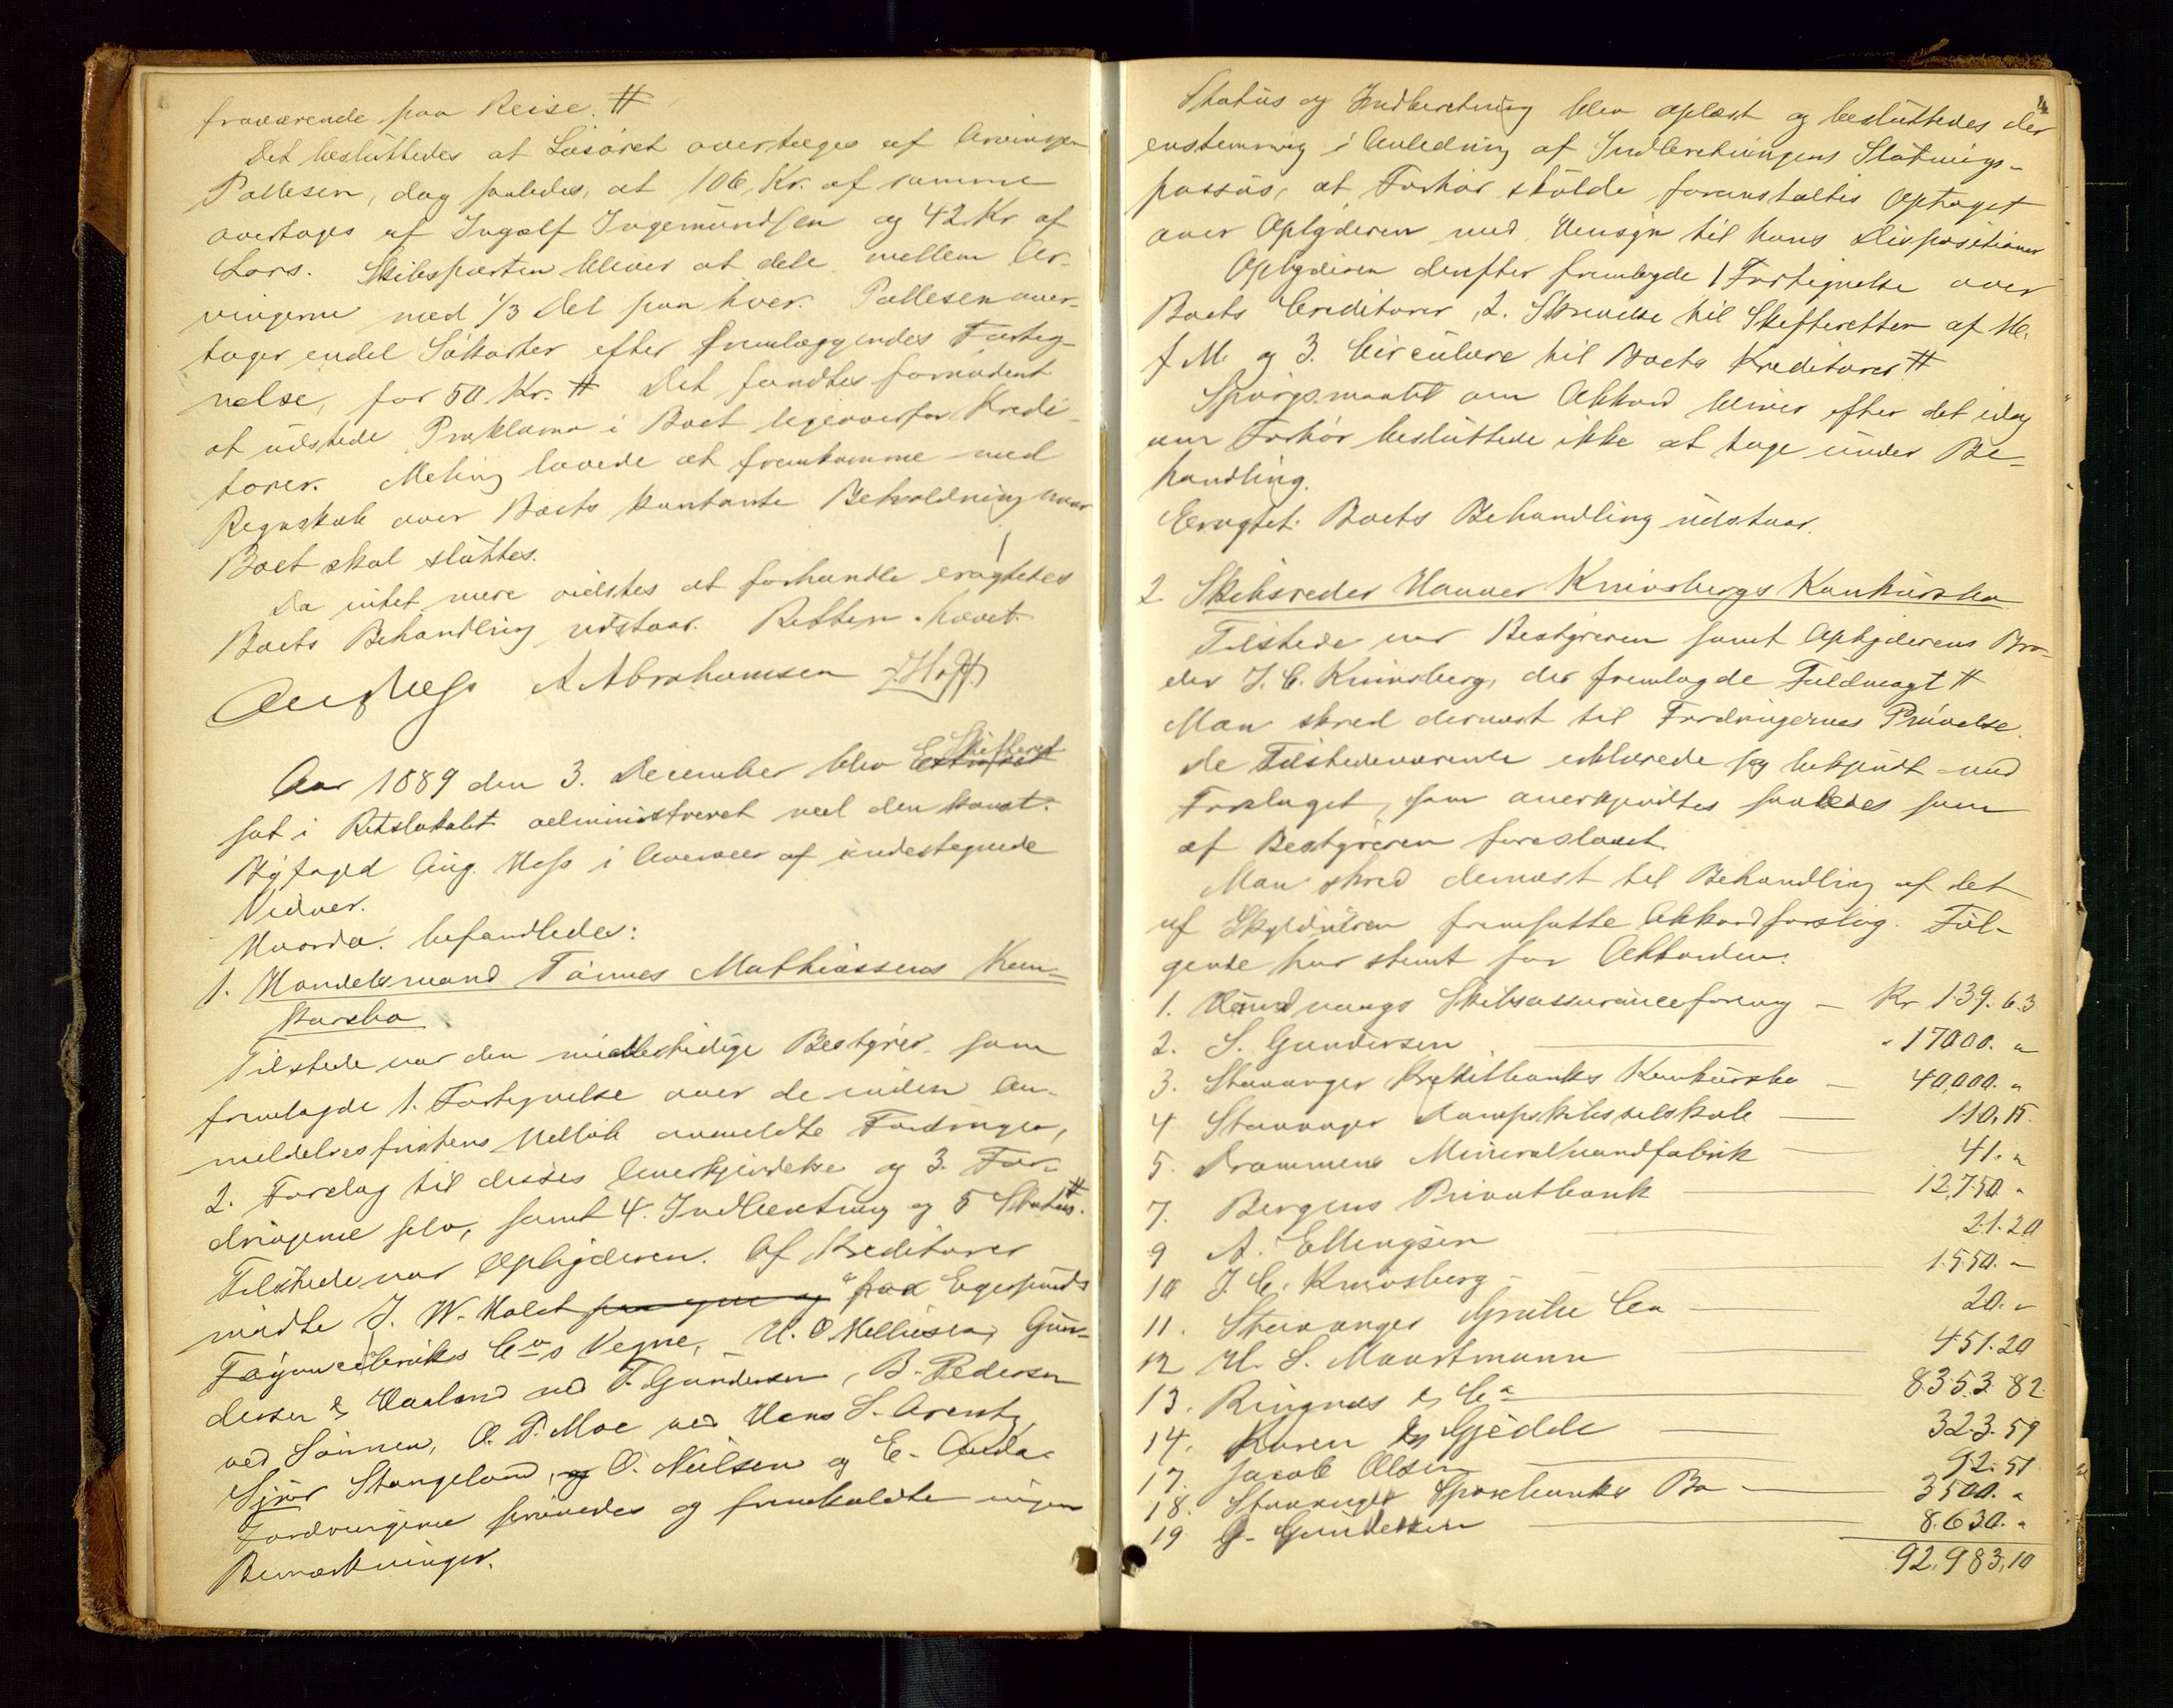 fraværende paa Reise. #
Det besluttedes at Løsøret overtages af Arvingen
Pallesen, dog saaledes, at 106 Kr. af samme
overtages af Ingolf Ingemundsen og 42 Kr. af
Lars. Skibsparten bliver at dele mellem Ar-
vingerne med 1/3 Del paa hver. Pallesen over-
tager endel Søkarter efter fremlæggendes Forteg-
nelse, for 50 Kr. # Det fandtes fornødent
at udstede Proklama i Boet ligeoverfor Kredi-
torer. Meling lovede at fremkomme med
Regnskab over Boets kontante Beholdning naar
Boet skal sluttes.
Da intet mere vidstes at forhandle eragtedes
Boets Behandling udstaar. Retten hævet.
Aug Hess A Abrahamsen
Aar 1889 den 3. December blev Skifteret
sat i Retslokalet administreret ved den konst.
Byfoged Aug. Hess i Overvær af undertegnede
Vidner.
Hvorda behandledes:
1. Handelsmand Tønnes Mathiassens Kon-
kursbo
Tilstede var den midlertidige Bestyrer som
fremlagde 1. Fortegnelse over de inden An-
meldelsesfristens Udløb anmeldte Fordringer,
2. Forslag til disses Anerkjendelse og 3. For-
dringerne selv, samt 4. Indberetning og 5 Status. #
Tilstede var Opbyderen. Af Kreditorer
mødte J. W. Holst paa egne og paa Egersunds
Fayancefabriks Co's Vegne, H. O. Helliesen, Gun-
dersen & Haaland ved T. Gundersen, B. Pedersen
ved Sønnen, O. P. Moe ved Hans L. Arentz,
Sjur Stangeland, og O. Neilsen og E. Auda-
Fordringerne prøvedes og fremkaldte ingen
Bemærkninger.
4
Status og Indberetning blev oplæst og besluttedes der
enstemmig i Anledning af Indberetningens Slutnings-
passus, at Forhør skulde foranstaltes optaget
over Opbyderen med Hensyn til hans Dispositioner
Opbyderen derefter fremlagde 1 Fortegnelse over
Boets Creditorer, 2. Skrivelse til Skifteretten af M.
f M. og 3. Circulære til Boets Kreditorer #
Spørgsmaalet om Akkord bliver efter det idag
om Forhør besluttede ikke at tage under Be-
handling.
Eragtet: Boets Behandling udstaar.
2. Skibsreder Hanver Knivsbergs Konkursbo
Tilstede var Bestyreren samt Opbyderens Bro-
der J. C. Knivsberg, der fremlagde Fuldmagt #
Man skred dernæst til Fordringernes Prøvelse.
de Tilstedeværende erklærede sig bekjendt med
Forslaget, som anerkjendtes saaledes som
af Bestyreren foreslaaet.
Man skred dernæst til Behandling af det
af Skyldneren fremsatte Akkordforslag. Føl-
gende har stemt for Akkorden:
1. Skibsassuranceforening — Kr 139.63
2. S. Gundersen " 17000. "
3. Stavanger Kreditbanks Konkursbo — 40,000. "
4 Stavanger Dampskibsselskab — 110.15
5. Drammens Mineralvandfabrik — 41. "
7. Bergens Privatbank — 12,750 "
9 A. Ellingsen 21.20
10 J. C. Knivsberg — 1550. "
11. Stavanger Grube Co — 20. "
12 H. S. Maartmann 451.20
13. Ringnes & Co 8353.82
14. Karen Gjedde — 323.59
17. Jacob Olsen — 92.51
18. Stavanger Sparebanks Bo — 3500. "
19 G. Gundersen — 8.630. "
92.983,10